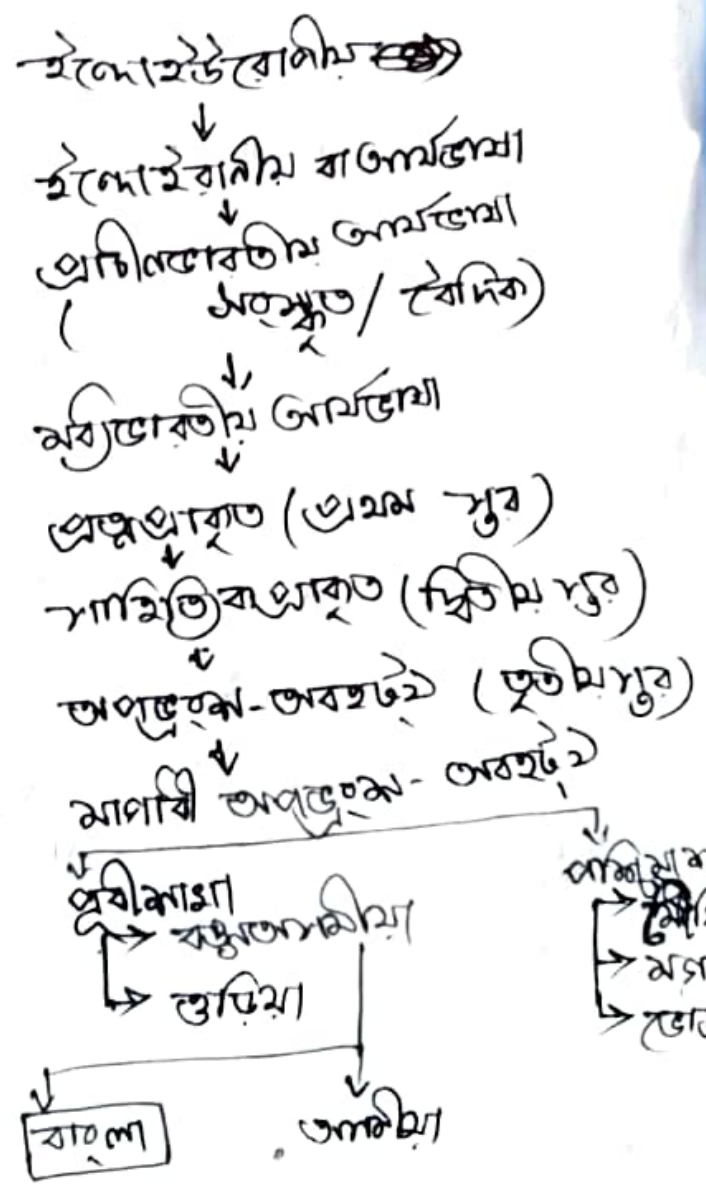 ইন্দোইউরোপীয়
ইন্দোইরানীয় বা আর্যভাষা
প্রাচীনভারতীয় আর্যভাষা
( সংস্কৃত / বৈদিক)
মধ্যভারতীয় আর্যভাষা
প্রত্নপ্রাকৃত (প্রথম স্তর)
সাহিত্যিক প্রাকৃত (দ্বিতীয় স্তর)
অপভ্রংশ-অবহট্‌ঠ (তৃতীয় স্তর)
মাগধী অপভ্রংশ- অবহট্‌ঠ
পূর্বীশাখা
বঙ্গঅসমীয়া
ওড়িয়া
বাংলা
অসমীয়া